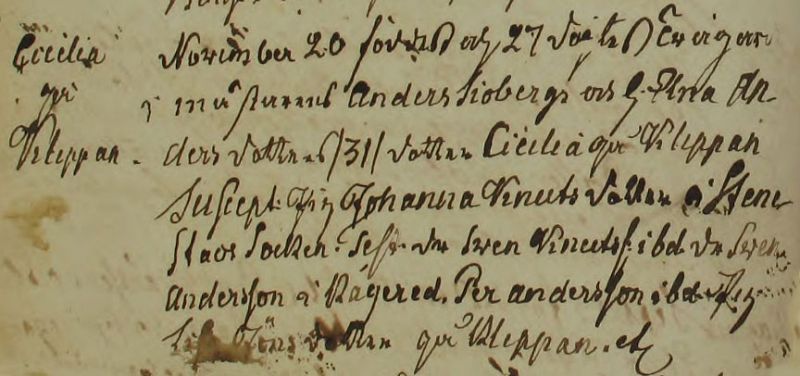 Cecilia
på
Kleppan.
November 20 föddes och 27 döptes Swigar
mästarens Anders Siobergs och H. Elna An
ders dotters /31/ dotter Cicilia på Kleppan
Suscept: Pig Johanna Knuts dotter i Stene
stads Socken. Test. dr Swen Knutss: ibd. dr Swen
Andersson i Kågeröd, Per andersson ibd. Pig
Jöns dotter på Kleppan. etc